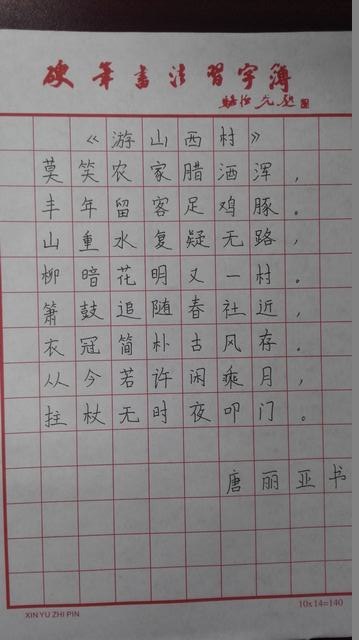 硬笔书法习字簿
《游山西村》
莫笑农家腊酒浑，
丰年留客足鸡豚。
山重水复疑无路，
柳暗花明又一村。
箫鼓追随春社近，
衣冠简朴古风存.
从今若许闲乘月，
拄杖无时夜叩门。
唐丽亚书
10x14=140
XIN YU ZHI PIN